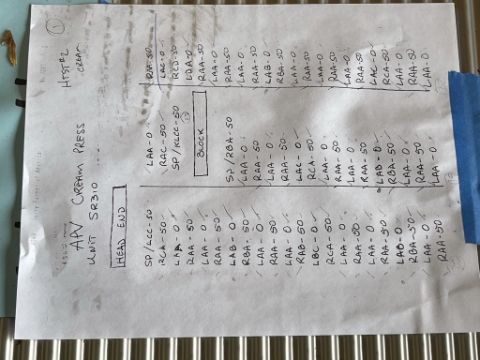 1
APV CREAM PRESS
UNIT SR310
HTST #2
CREAM
HEAD END
SP/LCC-50
RCA-50
LAB-0
RAA-50
LAA-0
RAA-50
LAB-0
RBA-50
LAA-0
RAA-50
LAA-0
RAB-50
LBC-0
RCA-50
LAA-0
RAA-50
LAA-0
RAA-50
LAB-0
RBA-50
LAA-0
RAA-50
LAA-0
RAC-50
SP/KLCC-50
BLOCK
SP/RBA-50
LAA-0
RAA-50
LAA-0
RAA-50
LAC-0
RCA-50
LAA-0
RAA-50
LAA-0
RAA-50
LAB-0
RBA-50
LAA-0
RAA-50
LAA-0
RAA-50
LAC-0
RCD-50
LDA-0
RAA-50
LAA-0
RAA-50
LAA-0
RAA-50
LAB-0
RBA-50
LAA-0
RAA-50
LAA-0
RAA-50
LAA-0
RAA-50
LAC-0
RCA-50
LAA-0
RAA-50
LAA-0